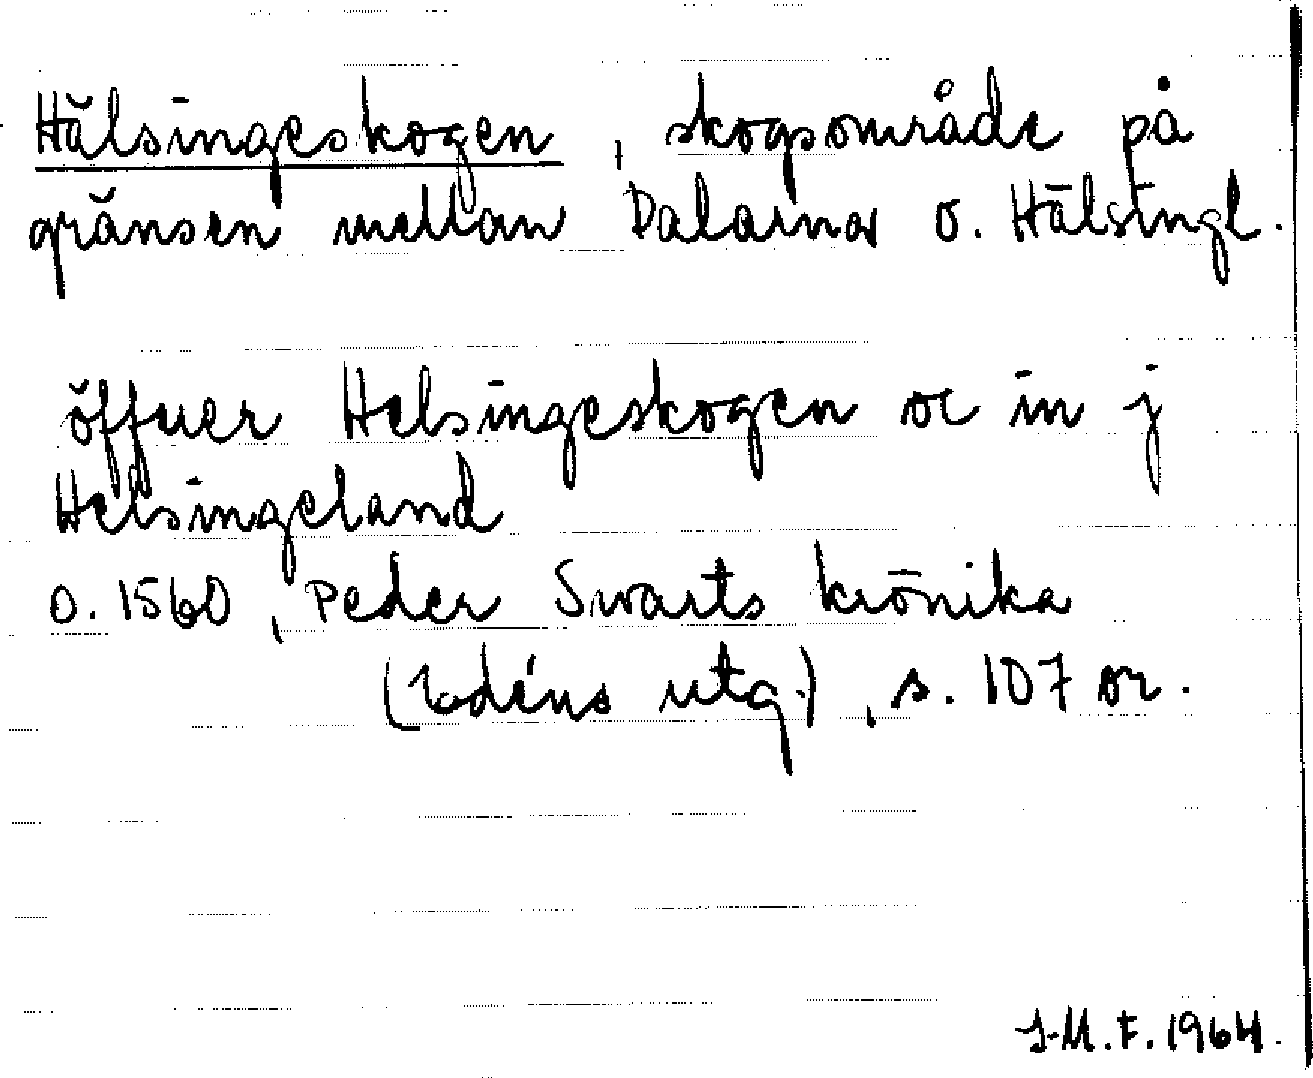 Hälsingeskogen, skogsområde på
gränsen mellan Dalarna o. Hälsingl.
öffuer Helsingeskogen oc in j
Helsingeland
o. 1560, Peder Swarts krönika
(Edéns utg.), s. 107 or.
J-M.F. 1964.